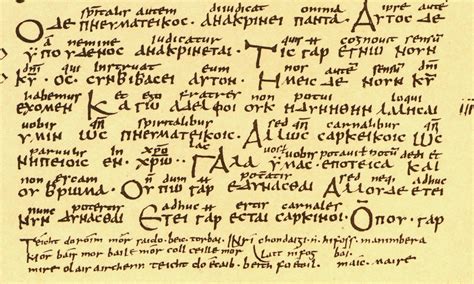 spitalis autem diiudicat omnia ipse autem
Ο ΔΕ ΠΝΕΥΜΑΤΕΙΚΟΣ. ΑΝΑΚΡΙΝΕΙ ΠΑΝΤΑ. ΑΥΤΟΣ ΔΕ
a nemine iudicatur quis cognovit sensū
ΥΠΟ ΥΔΕΝΟΣ ΑΝΑΚΡΙΝΕΤΑΙ. ΤΙΣ ΓΑΡ ΕΓΝΩ ΝΟΥΝ
dnī qui instruat eum nos autē sensū dnī
ΚΥ. ΟΣ ΣΥΝΒΙΒΑΣΕΙ ΑΥΤΟΝ. ΗΜΕΙΣ ΔΕ ΝΟΥΝ ΚΥ
habemus et ego fratres non potui loqui
ΕΧΟΜΕΝ ΚΑΓΩ ΑΔΕΛΦΟΙ ΟΥΚ ΗΔΥΝΗΘΗΝ ΛΑΛΗΣΑΙ
uobis spiritalibus sed carnalibus
ΥΜΙΝ ΩΣ ΠΝΕΥΜΑΤΕΙΚΟΙΣ. ΑΛΛ ΩΣ ΣΑΡΚΕΙΚΟΙΣ ΩΣ
paruulis in lac uobis potaui et
ΝΗΠΕΙΟΙΣ ΕΝ. ΧΡΩ. ΓΑΛΑ ΥΜΑΣ ΕΠΟΤΕΙΣΑ ΚΑΙ
non escam sed neq adhuc
ΟΥ ΒΡΩΜΑ. ΟΥΠΩ ΓΑΡ ΕΔΥΝΑΣΘΑΙ ΑΛΛΟΥΔΕ ΕΤΙ
nunc potestis adhuc estis carnales
ΝΥΝ ΔΥΝΑΣΘΑΙ ΕΤΕΙ ΓΑΡ ΕΣΤΑΙ ΣΑΡΚΙΝΟΙ. ΟΠΟΥ. ΓΑΡ
Teicht doróim mór saido. becic torbai. INrí chondaigi. n. hifoss. manimbera
mór báis mor baile mór coll ceille mór
mire olais airchenn teicht doécaib. beith foétoil. maic. maire